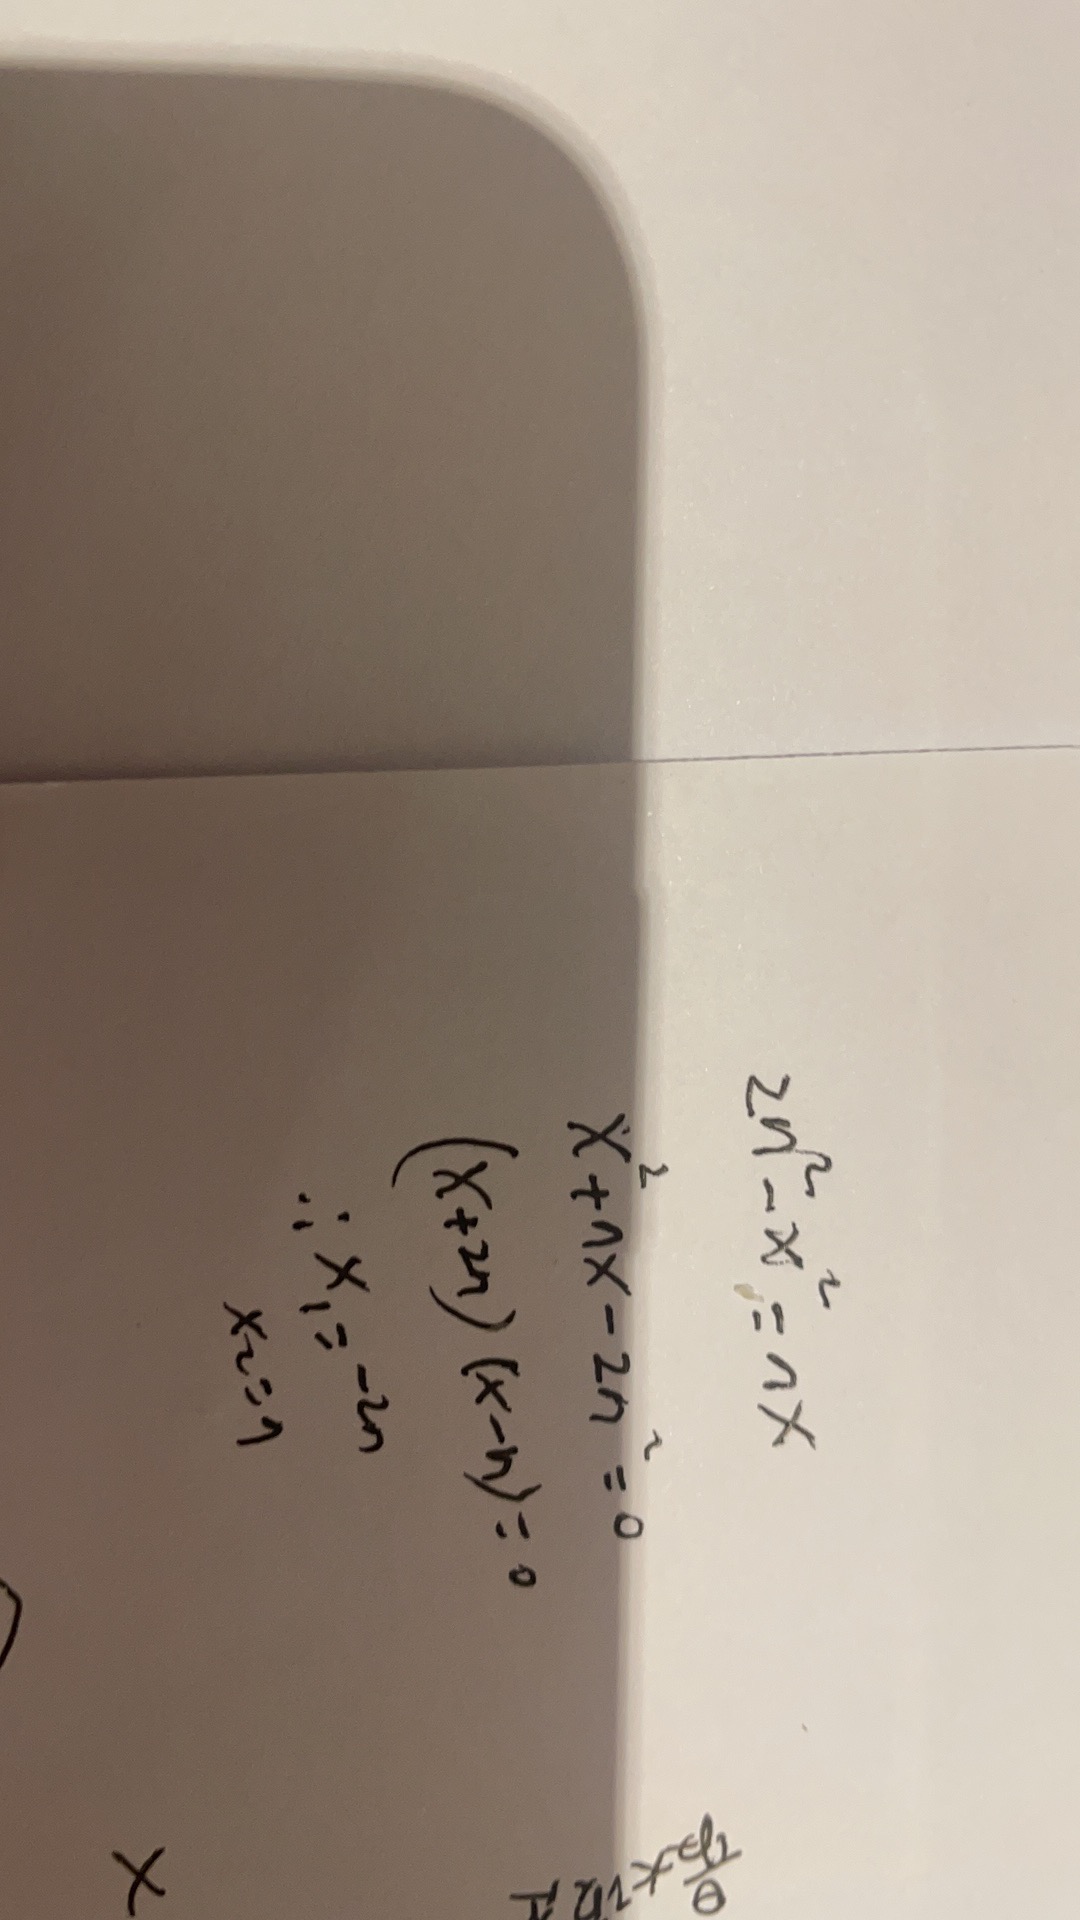 2n² - x² = nx
x² + nx - 2n² = 0
(x+2n)(x-n) = 0
∴ x₁ = -2n
x₂ = n
x